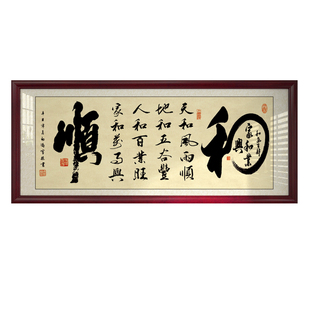 和
家和業興
天和風雨順
地和五谷豐
人和百業旺
家和萬事興
順